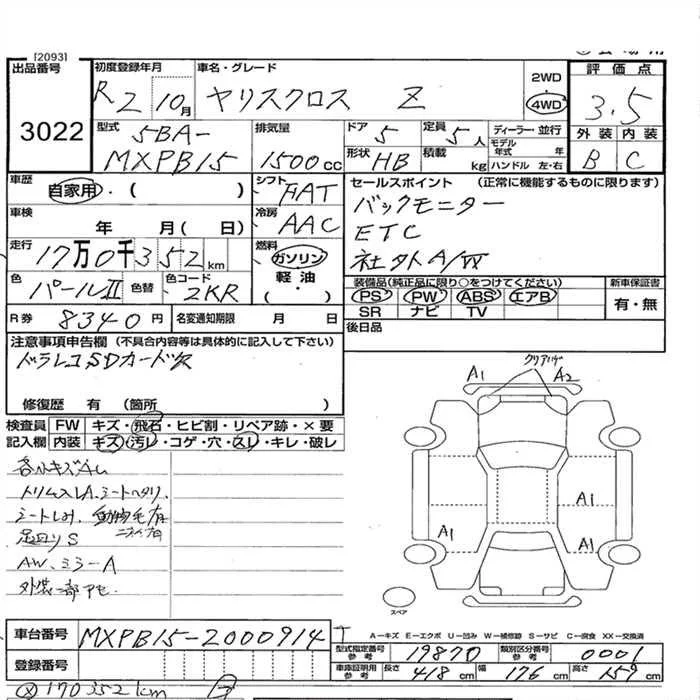 [2093]
出品番号 3022
初度登録年月 R2 10月
車名・グレード ヤリスクロス Z
2WD 4WD
評価点 3.5
外装 内装
B C
型式 5BA-MXPB15
排気量 1500cc
ドア 5 定員 5人
形状 HB 積載 kg
ディーラー・並行
モデル年式 年
ハンドル 左・右
車歴 自家用・( )
シフト FAT
セールスポイント (正常に機能するものに限ります)
バックモニター
ETC
社外A/W
車検 年 月( 日)
冷房 AAC
走行 17万0千352km
燃料 ガソリン 軽油・( )
色 パールⅡ 色替 色コード 2KR
装備品(純正品に限り○をつけてください)
PS PW ABS エアB
SR ナビ TV
新車保証書 有・無
R券 8340円 名変通知期限 月 日
後日品
注意事項申告欄 (不具合内容等は具体的に記入して下さい)
ドラレコSDカード欠
修復歴 有 (箇所 )
検査員記入欄
FW キズ・飛石・ヒビ割・リペア跡・×要
内装 キズ・汚レ・コゲ・穴・スレ・キレ・破レ
トリム入レA、シートヘタリ、
シートしみ、動物毛有
足回りS
AW、ミラーA
外装一部アセ
クリアハゲ
A1 A2
A1
A1 A1
スペア
A—キズ E—エクボ U—凹み W—補修跡 S—サビ C—腐食 XX—交換済
車台番号 MXPB15-2000914
登録番号
型式指定番号参考 19870 類別区分番号参考 0001
車庫証明用参考 長さ 418cm 幅 176cm 高さ 159cm
170352km